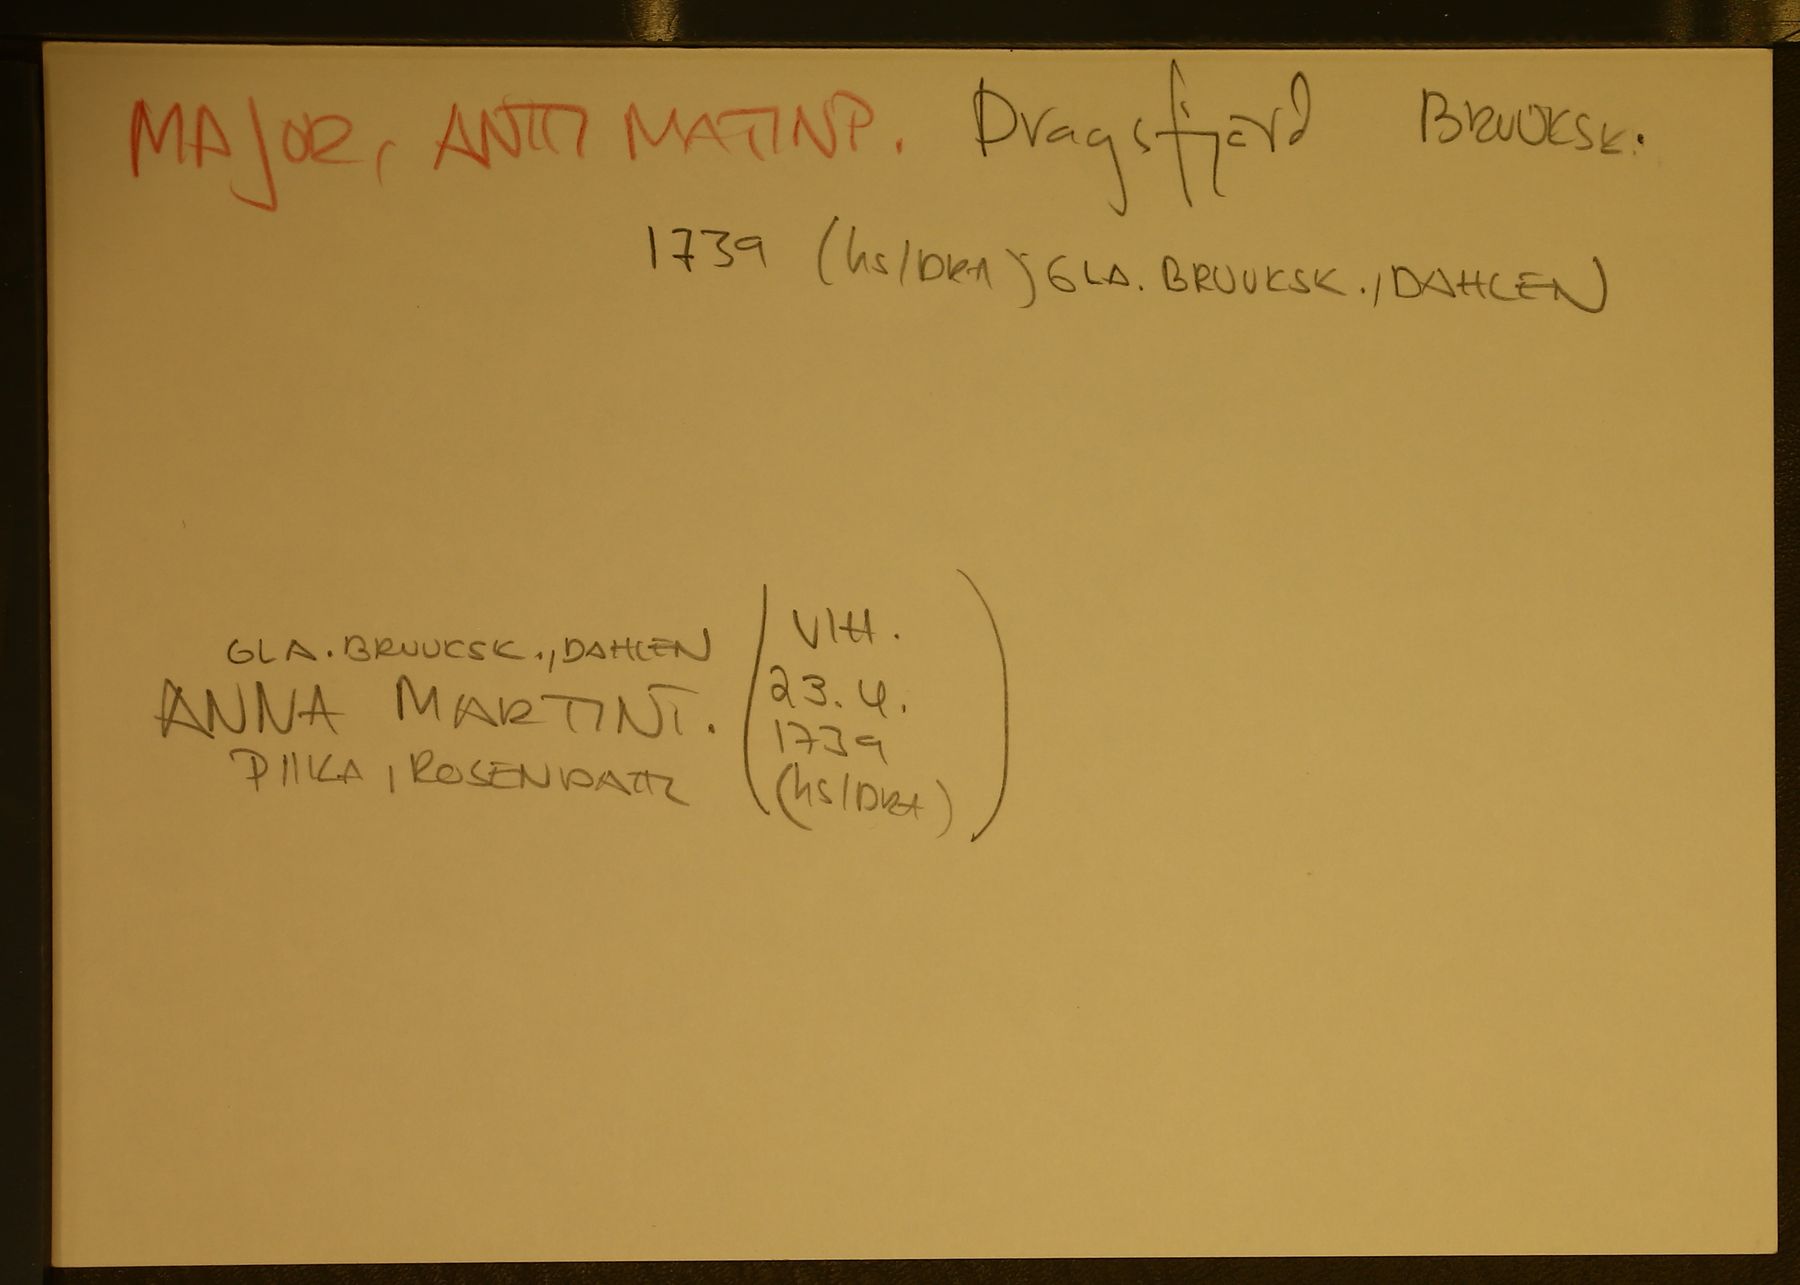 MAJOR, ANTTI MATINP. Dragsfjerd BRUUKSK.
1739 (hs/DRA); GLA. BRUUKSK., DAHLEN
GLA. BRUUKSK., DAHLEN
ANNA MARTINT.
PIIKA, ROSENDAHL
(VIH.
23.4.
1739
(hs/DRA))